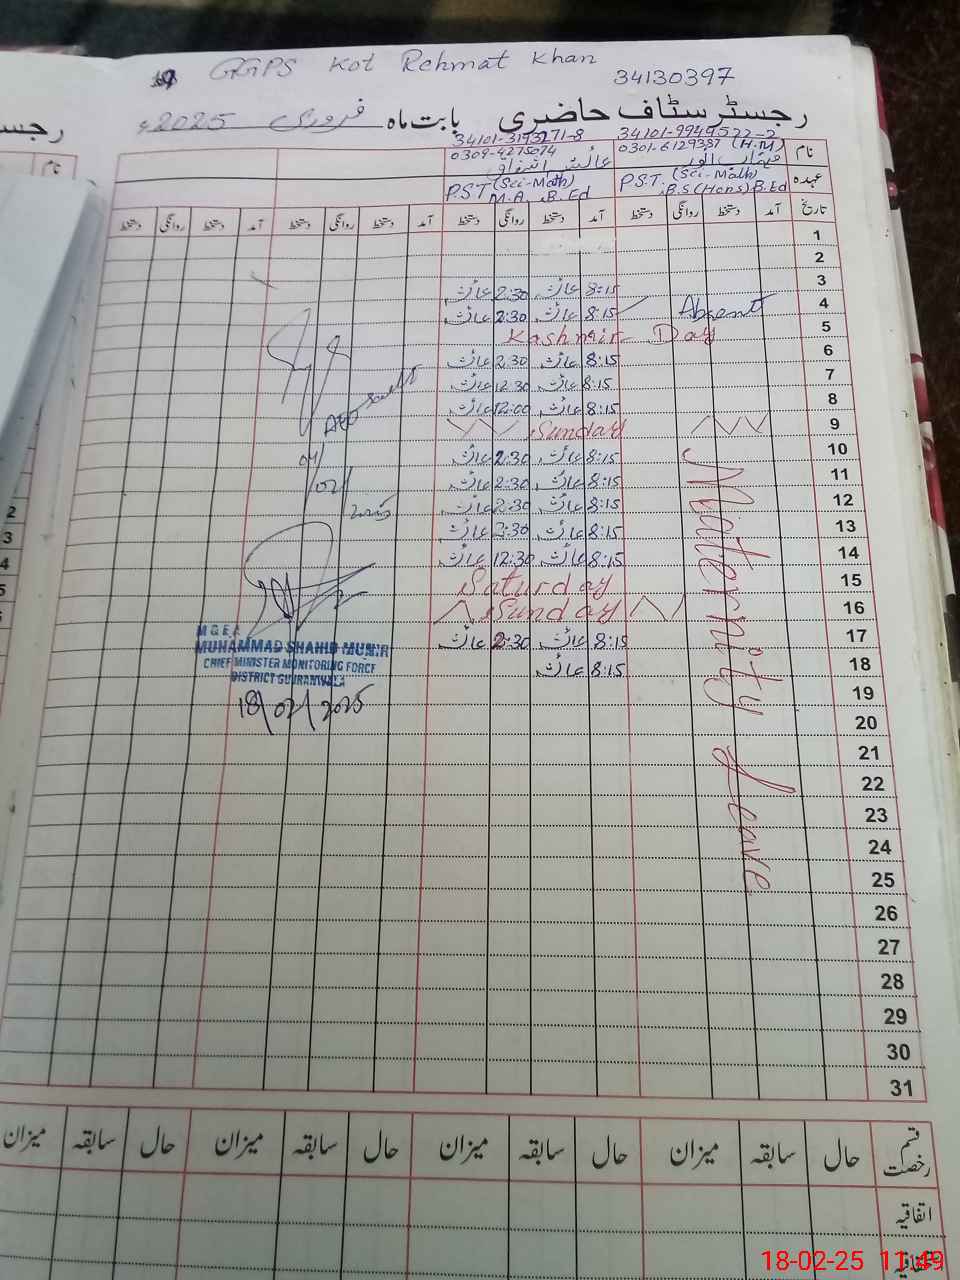 GGPS Kot Rehmat Khan
34130397
رجسٹر سٹاف حاضری بابت ماہ فروری 2025ء
نام 34101-9949522-2 34101-3193271-8
0301-6129387 (H.M) 0309-4275074
عائشہ اشفاق
عہدہ P.S.T. (Sci-Math) P.S.T (Sci-Math)
B.S (Hons) B.Ed M.A, B.Ed
تاریخ آمد دستخط روانگی دستخط آمد دستخط روانگی دستخط آمد دستخط روانگی دستخط آمد دستخط روانگی دستخط
1
2
3 8:15 عائشہ 2:30 عائشہ
4 Absent 8:15 عائشہ 2:30 عائشہ
5 Kashmir Day
6 8:15 عائشہ 2:30 عائشہ
7 8:15 عائشہ 12:30 عائشہ
8 8:15 عائشہ 12:00 عائشہ
9 Sunday
10 8:15 عائشہ 2:30 عائشہ
11 8:15 عائشہ 2:30 عائشہ
12 8:15 عائشہ 2:30 عائشہ
13 8:15 عائشہ 2:30 عائشہ
14 8:15 عائشہ 12:30 عائشہ
15 Saturday
16 Sunday
17 8:15 عائشہ 2:30 عائشہ
18 8:15 عائشہ
19
20
21
22
23
24
25
26
27
28
29
30
31
Maternity Leave
AEO
04/02/2025
M G E A
MUHAMMAD SHAHID MUNIR
CHIEF MINISTER MONITORING FORCE
DISTRICT GUJRANWALA
18/02/2025
قسم رخصت حال سابقہ میزان حال سابقہ میزان حال سابقہ میزان حال سابقہ میزان
اتفاقیہ
18-02-25 11:49